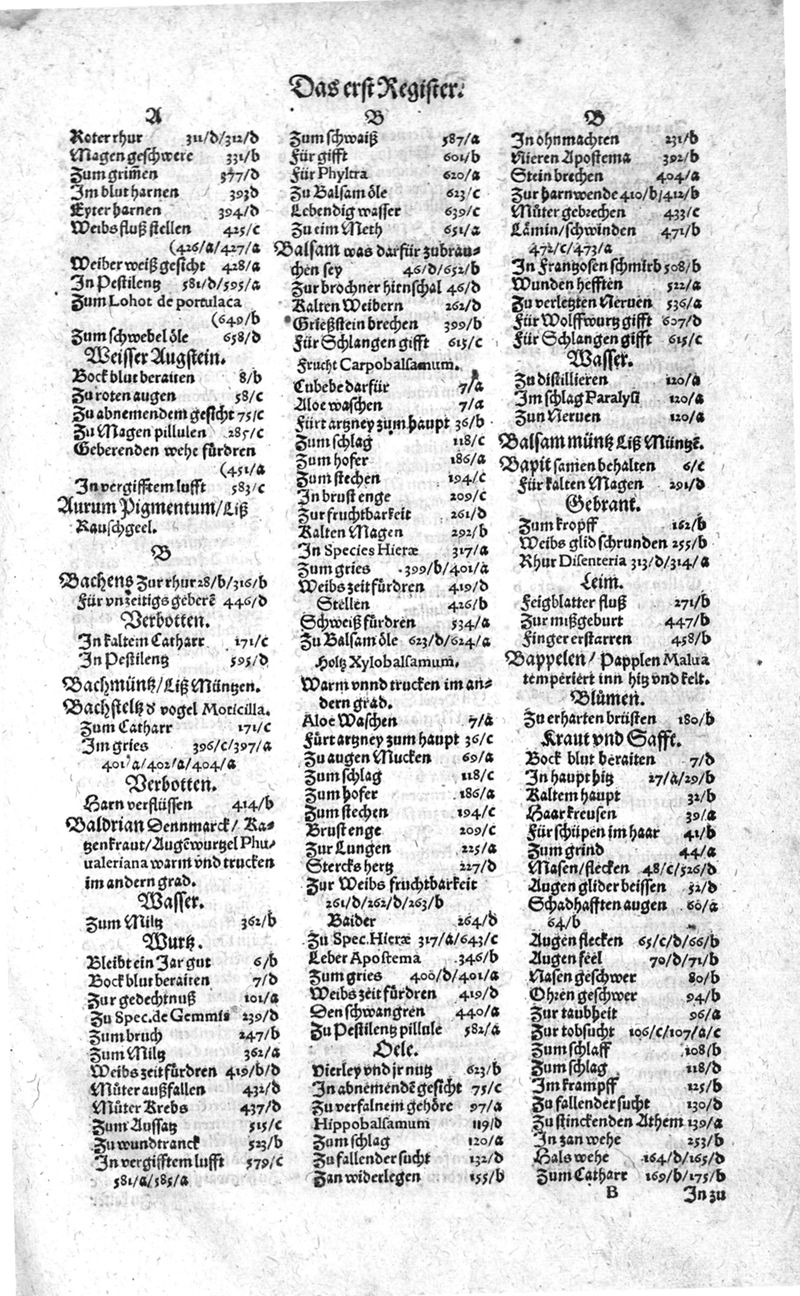 Das erst Register.
A
Roter rhur 311/d/312/d
Magen geschwere 331/b
Zum grim̃en 377/d
Im blut harnen 393d
Eyter harnen 394/d
Weibs fluß stellen 425/c
(426/a/427/a
Weiber weiß gesicht 428/a
In Pestilentz 581/d/595/a
Zum Lohot de portulaca
(649/b
Zum schwebel öle 658/d
Weisser Augstein.
Bock blut beraiten 8/b
Zu roten augen 58/c
Zu abnemendem gesicht 75/c
Zu Magen pillulen 285/c
Geberenden wehe fürdren
(451/a
In vergifftem lufft 583/c
Aurum Pigmentum/Liß
Rauschgeel.
B
Bachens Zur rhur 28/b/316/b
Für vnzeitigs geberẽ 446/d
Verbotten.
In kaltem Catharr 171/c
In Pestilentz 595/d
Bachmüntz/Liß Müntzen.
Bachsteltz d vogel Moticilla.
Zum Catharr 171/c
Im gries 396/c/397/a
401/a/402/a/404/a
Verbotten.
Harn verflüssen 414/b
Baldrian Dennmarck/ Ka-
tzenkraut/Augẽwurtzel Phu/
ualeriana warm vnd trucken
im andern grad.
Wasser.
Zum Miltz 362/b
Wurtz.
Bleibt ein Jar gut 6/b
Bock blut beraiten 7/d
Zur gedechtnuß 101/a
Zu Spec. de Gemmis 239/d
Zum bruch 247/b
Zum Miltz 362/a
Weibs zeit fürdren 419/b/d
Müter außfallen 432/d
Müter Krebs 437/d
Zum Aussatz 515/c
Zu wundtranck 523/b
In vergifftem lufft 579/c
581/a/585/a
B
Zum schwaiß 587/a
Für gifft 601/b
Für Phyltra 620/a
Zu Balsam öle 623/c
Lebendig wasser 639/c
Zu eim Meth 651/a
Balsam was darfür zubrau-
chen sey 46/d/652/b
Zur brochner hirnschal 46/d
Kalten Weibern 262/d
Grießstein brechen 399/b
Für Schlangen gifft 615/c
Frucht Carpobalsamum.
Cubebe darfür 7/a
Aloe waschen 7/a
Fürt artzney zum haupt 36/b
Zum schlag 118/c
Zum hofer 186/a
Zum stechen 194/c
In brust enge 209/c
Zur fruchtbarkeit 261/d
Kalten Magen 292/b
In Species Hieræ 317/a
Zum gries 399/b/401/a
Weibs zeit fürdren 419/d
Stellen 426/b
Schweiß fürdren 534/a
Zu Balsam öle 623/d/624/a
Holtz Xylobalsamum.
Warm vnnd trucken im an-
dern grad.
Aloe Waschen 7/a
Fürt artzney zum haupt 36/c
Zu augen Mucken 69/a
Zum schlag 118/c
Zum hofer 186/a
Zum stechen 194/c
Brust enge 209/c
Zur Lungen 225/a
Stercks hertz 227/d
Zur Weibs fruchtbarkeit
261/d/262/d/263/b
Baider 264/d
Zu Spec. Hieræ 317/a/643/c
Leber Apostema 346/b
Zum gries 400/d/401/a
Weibs zeit fürdren 419/d
Den schwangren 440/a
Zu Pestilentz pillule 582/a
Oele.
Vierley vnd jr nutz 623/b
In abnemendẽ gesicht 75/c
Zu verfalnem gehöre 97/a
Hippobalsamum 119/d
Zum schlag 120/a
Zu fallender sucht 132/d
Zan widerlegen 155/b
B
In ohnmachten 231/b
Nieren Apostema 392/b
Stein brechen 404/a
Zur harnwende 410/b/412/b
Müter gebrechen 433/c
Lämin/schwinden 471/b
472/c/473/a
In Frantzosen schmirb 508/b
Wunden hefften 522/a
Zu verletzten Neruen 536/a
Für Wolffwurtz gifft 607/d
Für Schlangen gifft 615/c
Wasser.
Zu distillieren 120/a
Im schlag Paralysi 120/a
Zun Neruen 120/a
Balsam müntz Liß Müntzẽ.
Bapir samen behalten 6/c
Für kalten Magen 291/d
Gebrant.
Zum kropff 162/b
Weibs glid schrunden 255/b
Rhur Disenteria 313/d/314/a
Leim.
Feigblatter fluß 271/b
Zur mißgeburt 447/b
Finger erstarren 458/b
Bappelen/ Papplen Malua
temperiert inn hitz vnd kelt.
Blůmen.
Zu erharten brüsten 180/b
Kraut vnd Safft.
Bock blut beraiten 7/d
In haupt hitz 27/a/29/b
Kaltem haupt 32/b
Haar kreusen 39/a
Für schüpen im haar 41/b
Zum grind 44/a
Masen/flecken 48/c/526/d
Augen glider beissen 52/d
Schadhafften augen 60/a
64/b
Augen flecken 65/c/d/66/b
Augen feel 70/d/71/b
Nasen geschwer 80/b
Ohren geschwer 94/b
Zur taubheit 96/a
Zur tobsucht 106/c/107/a/c
Zum schlaff 108/b
Zum schlag 118/d
Im krampff 125/b
Zu fallender sucht 130/d
Zu stinckenden Athem 139/a
In zan wehe 253/b
Hals wehe 164/d/165/d
Zum Catharr 169/b/175/b
B In zu